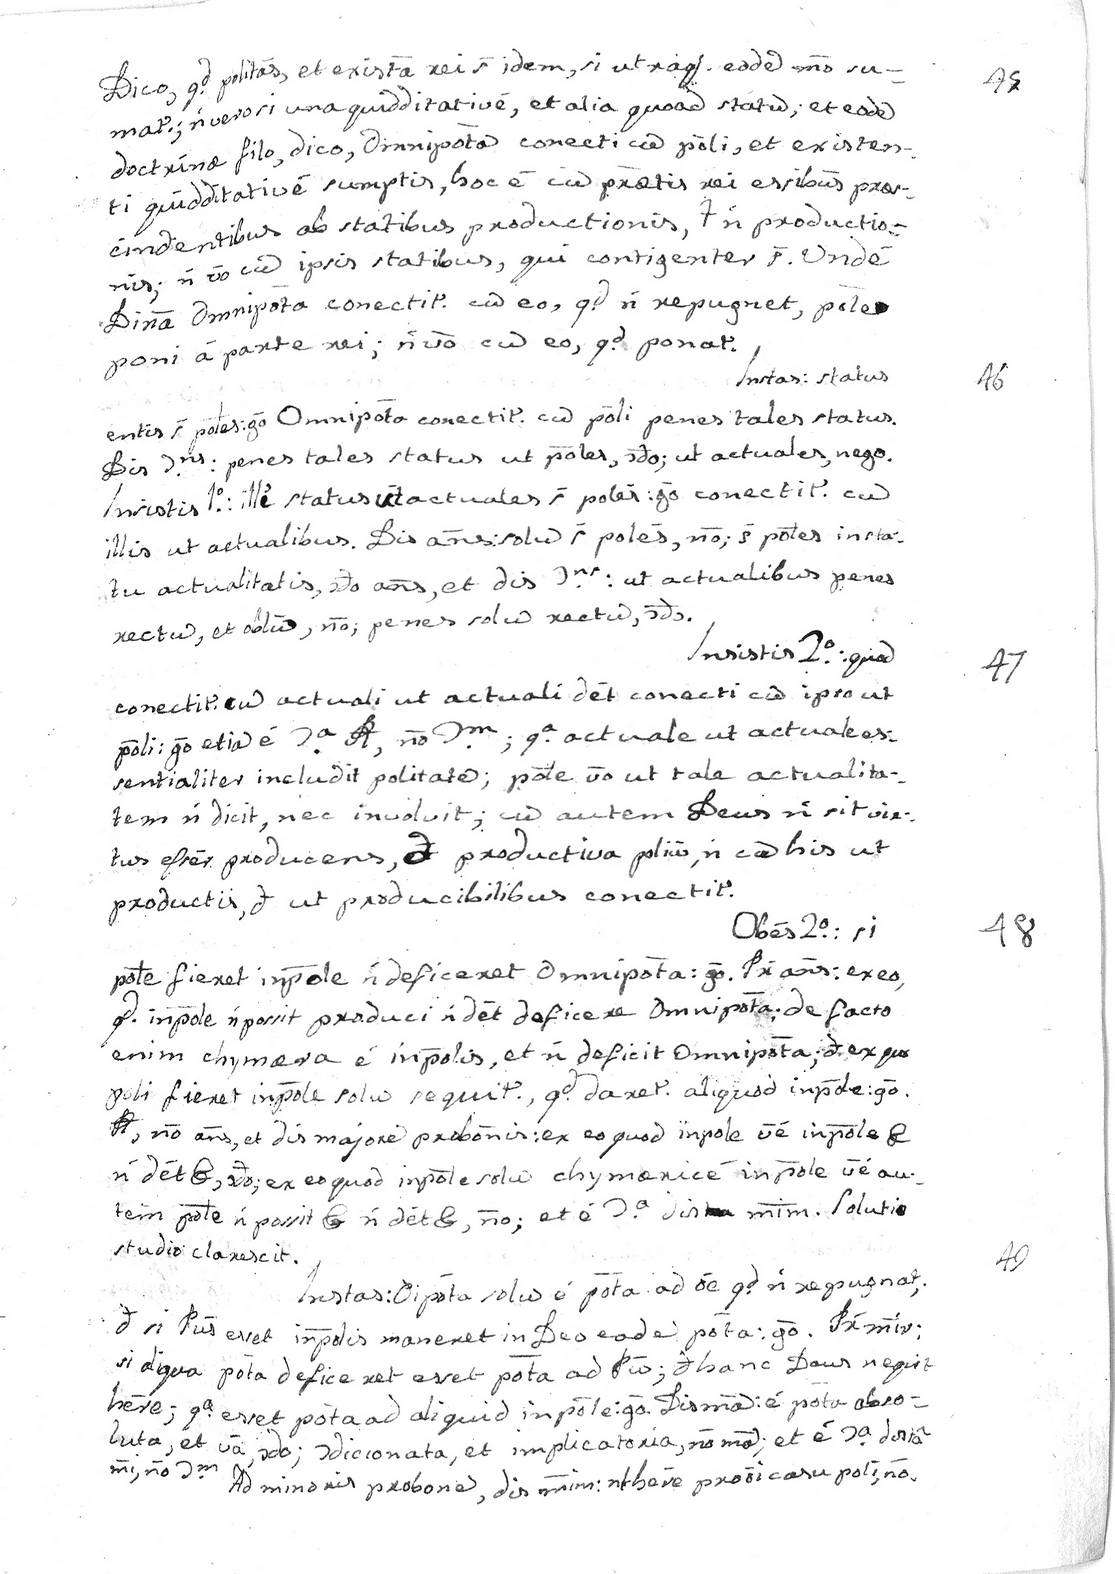 Dico, q̃d politãs, et existã rei s̃ idem, si ut raq̃. eodẽ mõ su- 45
mat.; ñ vero si una quidditativé, et alia quoad statũ; et eodẽ
doctrinæ filo, dico, Omnipotã conecti cũ põli, et existen-
ti quidditativé sumptis, hoc ẽ cũ præ̃tis rei essibus præs-
cindentibus ab statibus productionis, ł ñ productio-
nis; ñ võ cũ ipsis statibus, qui contigenter s̃. Undé
Divinã Omnipotã conectit.r cũ eo, q̃d ñ repugnet, põle
poni á parte rei; ñ võ cũ eo, q̃d ponat.r
Instas: status 46
entis s̃ põles: gõ Omnipotã conectit.r cũ põli penes tales status.
Dis Ɔns: penes tales status ut põles, Ɔdo; ut actuales, nego.
Insistis 1º.: ille status ut actuales s̃ põles: gõ conectit.r cũ
illis ut actualibus. Dis añs: solũ s̃ põles, nõ; s̃ põles in sta-
tu actualitatis, Ɔdo añs, et dis Ɔns: ut actualibus penes
rectũ, et oblũ, nõ; penes solũ rectũ, Ɔdo.
Insistis 2º.: quod 47
conectit.r cũ actuali ut actuali dẽt conecti cũ ipso ut
põli: gõ etiã ẽ Ɔa R̃, nõ Ɔm; q̃a actuale ut actuale es-
sentialiter includit politatẽ; põle võ ut tale actualita-
tem ñ dicit, nec involvit; cũ autem Deus ñ sit vir-
tus essẽr producens, sed productiva poliũ, ñ cũ his ut
productis, sed ut producibilibus conectit.r
Obẽs 2º.: si 48
põle fieret inpõle ñ deficeret Omnipotã: gõ. Pr̃ añs: ex eo,
q̃d. inpõle ñ possit produci ñ dẽt deficere Omnipotã; de facto
enim chymæra ẽ inpõlis, et ñ deficit Omnipotã; sed ex quo
poli fieret inpõle solũ sequit.r, q̃d daret.r aliquod inpõle: gõ.
R̃, nõ añs, et dis majorẽ probõnis: ex eo quod inpole vẽ inpõle &
ñ dẽt &, Ɔdo; ex eo quod inpõle solũ chymæricé inpõle vẽ au-
tem põle ñ possit & ñ dẽt &, nõ; et ẽ Ɔa dis mim̃. Solutio
studio clarescit.
Instas: Oipotã solũ ẽ potã ad õe q̃d ñ repugnat; 49
sed si Pũs esset inpõlis maneret in Deo eadẽ potã: gõ. Pr̃ mir̃;
si aliqua potã deficeret esset potã ad Pũ; sed hanc Deus nequit
hẽre; q̃a esset potã ad aliquid inpõle: gõ. Dis mã: ẽ potã abso-
luta, et vã, Ɔdo; Ɔdicionata, et implicatoria, nõ mã; et ẽ Ɔa distã
mĩ, nõ Ɔm Ad minoris probonẽ, dis mim̃: ñt hẽre pro õi casu poli, nõ.